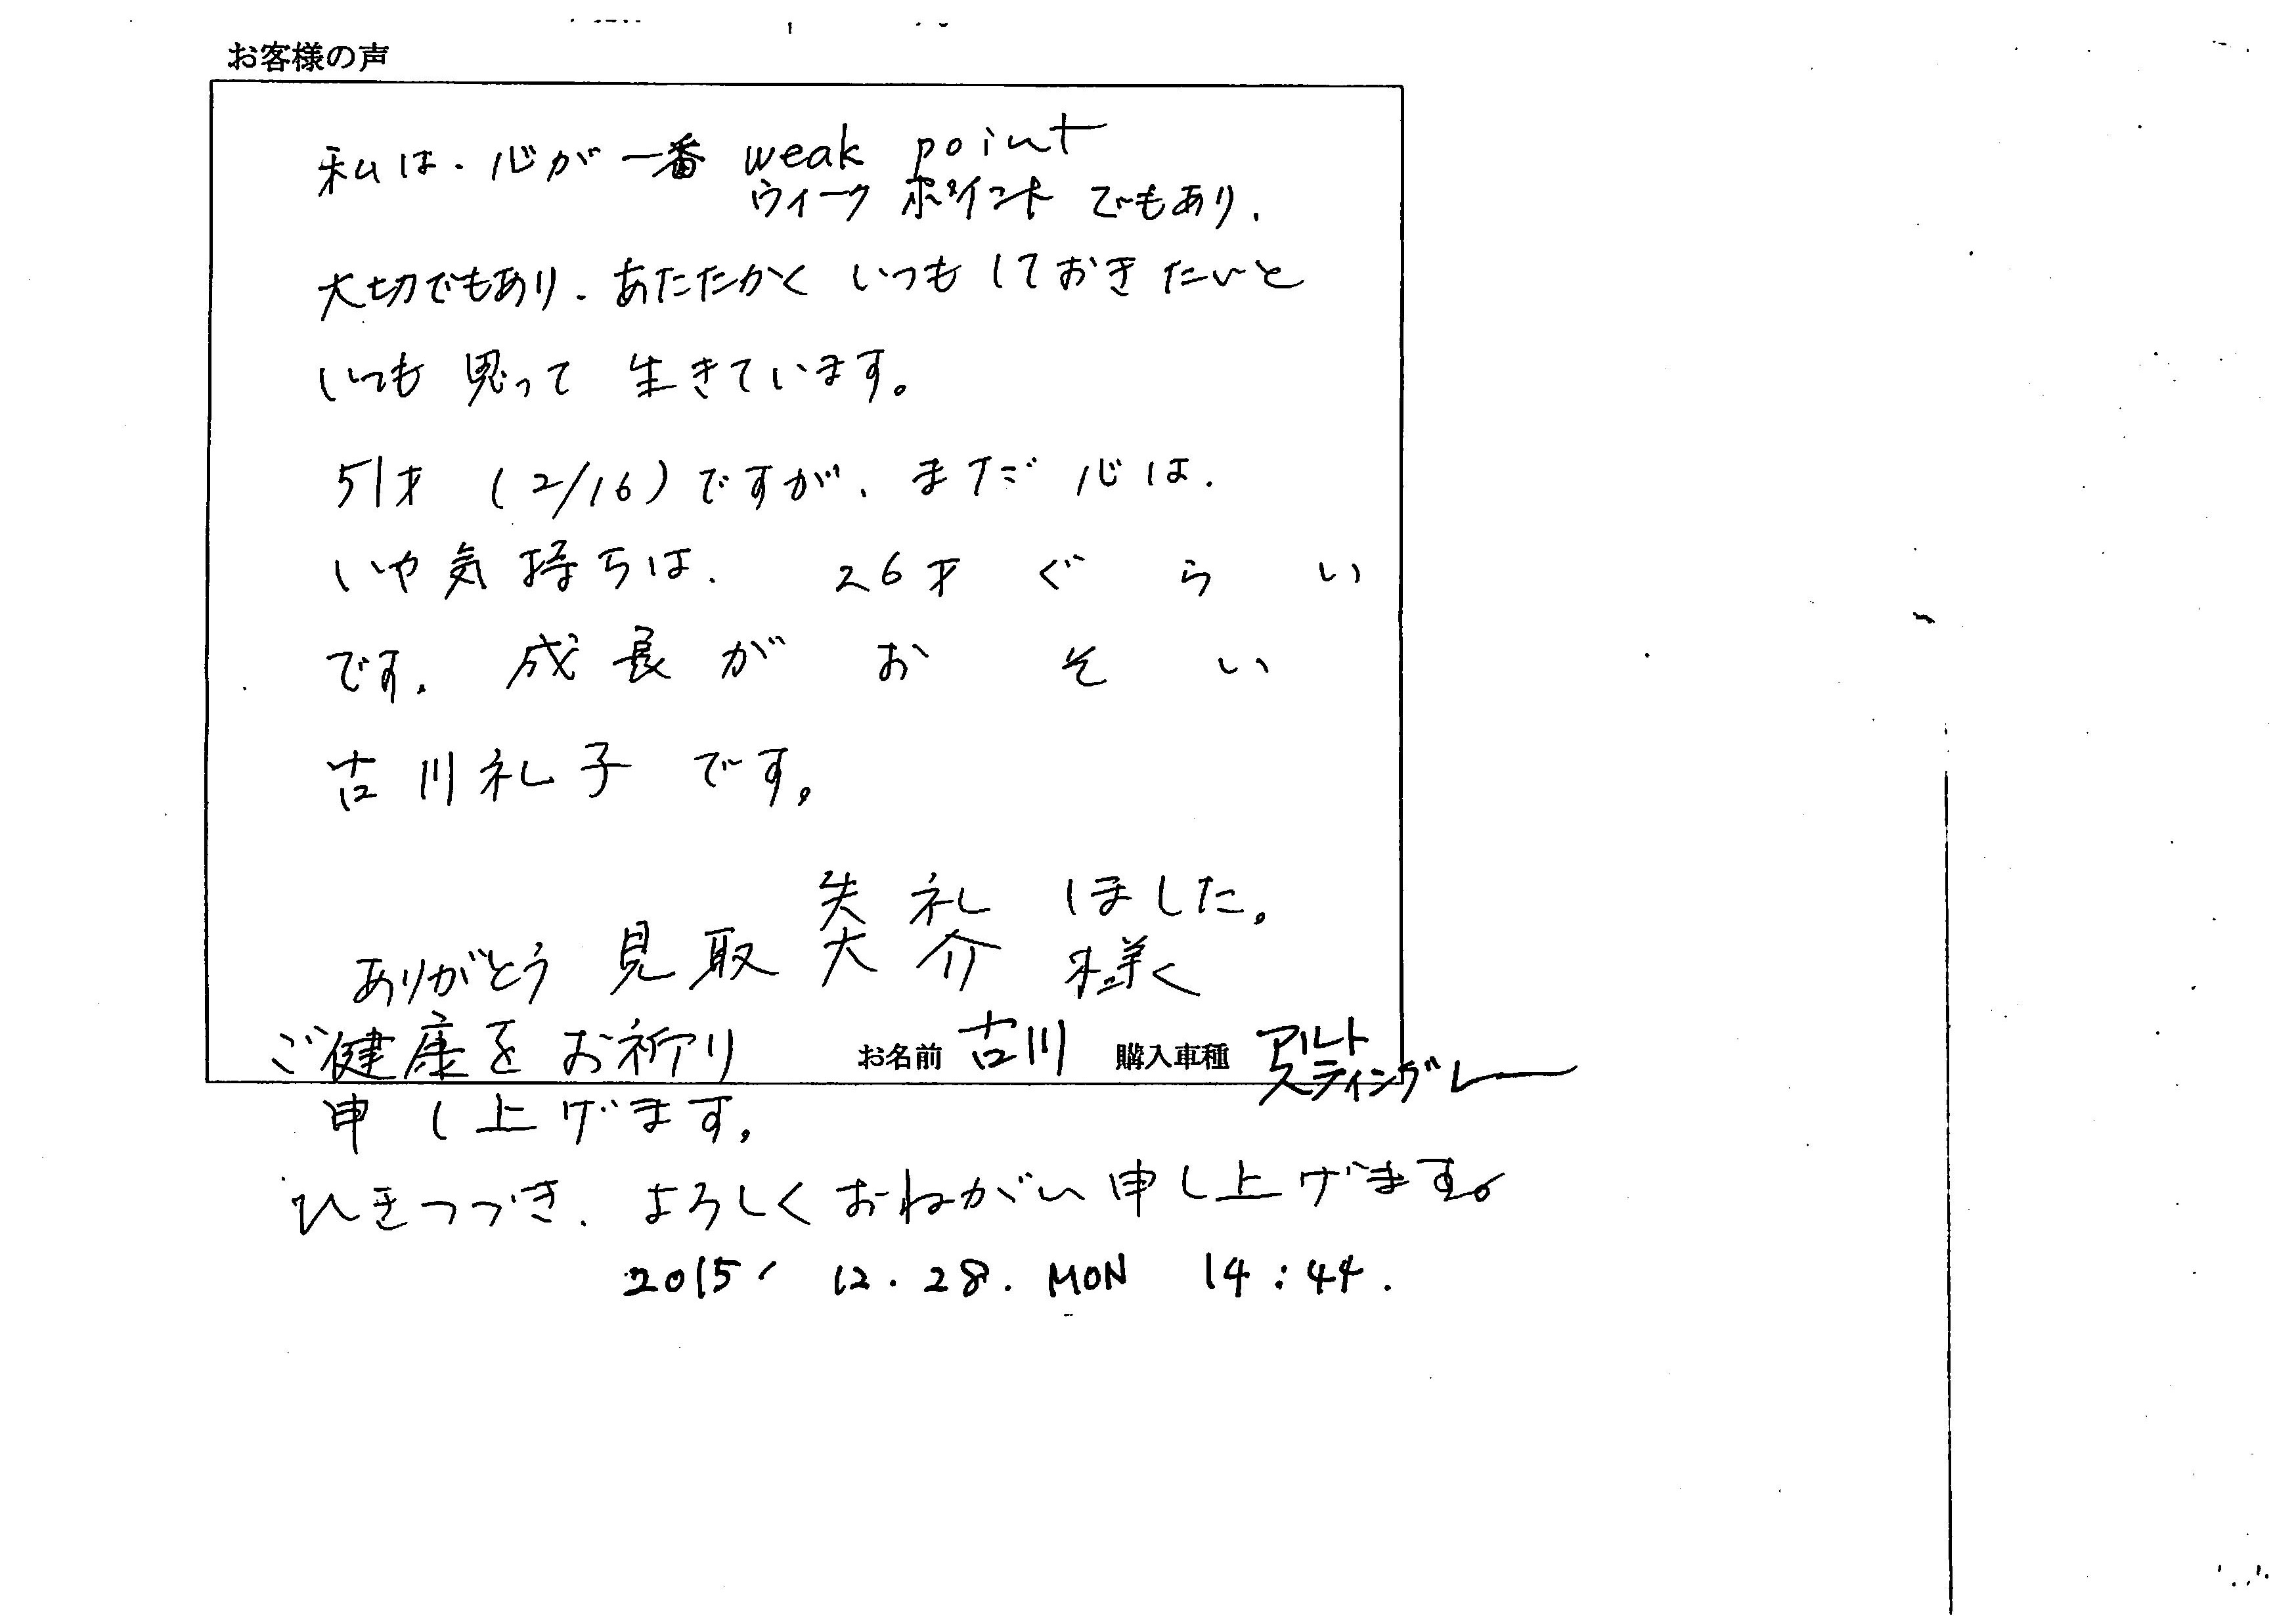 お客様の声
私は、心が一番 weak point
ウィーク ポイント でもあり、
大切でもあり、あたたかく いつも しておきたいと
いつも 思って 生きています。
51才 (2/16)ですが、まだ 心は、
いや気持ちは、 26才 ぐ ら い
です。 成長が お そ い
古川礼子 です。
失礼 しました。
ありがとう 見取 大介 様
ご健康を お祈り
お名前 古川 購入車種 アルト
スティングレー
申し上げます。
ひきつづき、よろしくおねがい申し上げます。
2015, 12. 28. MON 14:44.